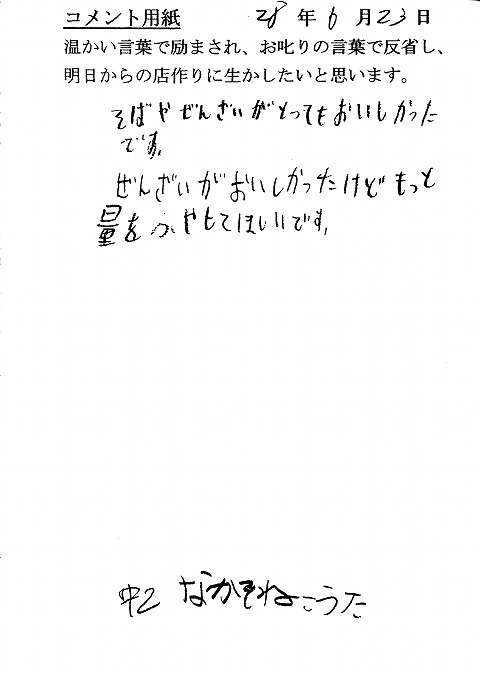 コメント用紙 28年6月23日
温かい言葉で励まされ、お叱りの言葉で反省し、
明日からの店作りに生かしたいと思います。
そばやぜんざいがとってもおいしかった
です。
ぜんざいがおいしかったけどもっと
量をふやしてほしいです。
中2 なかそねこうた